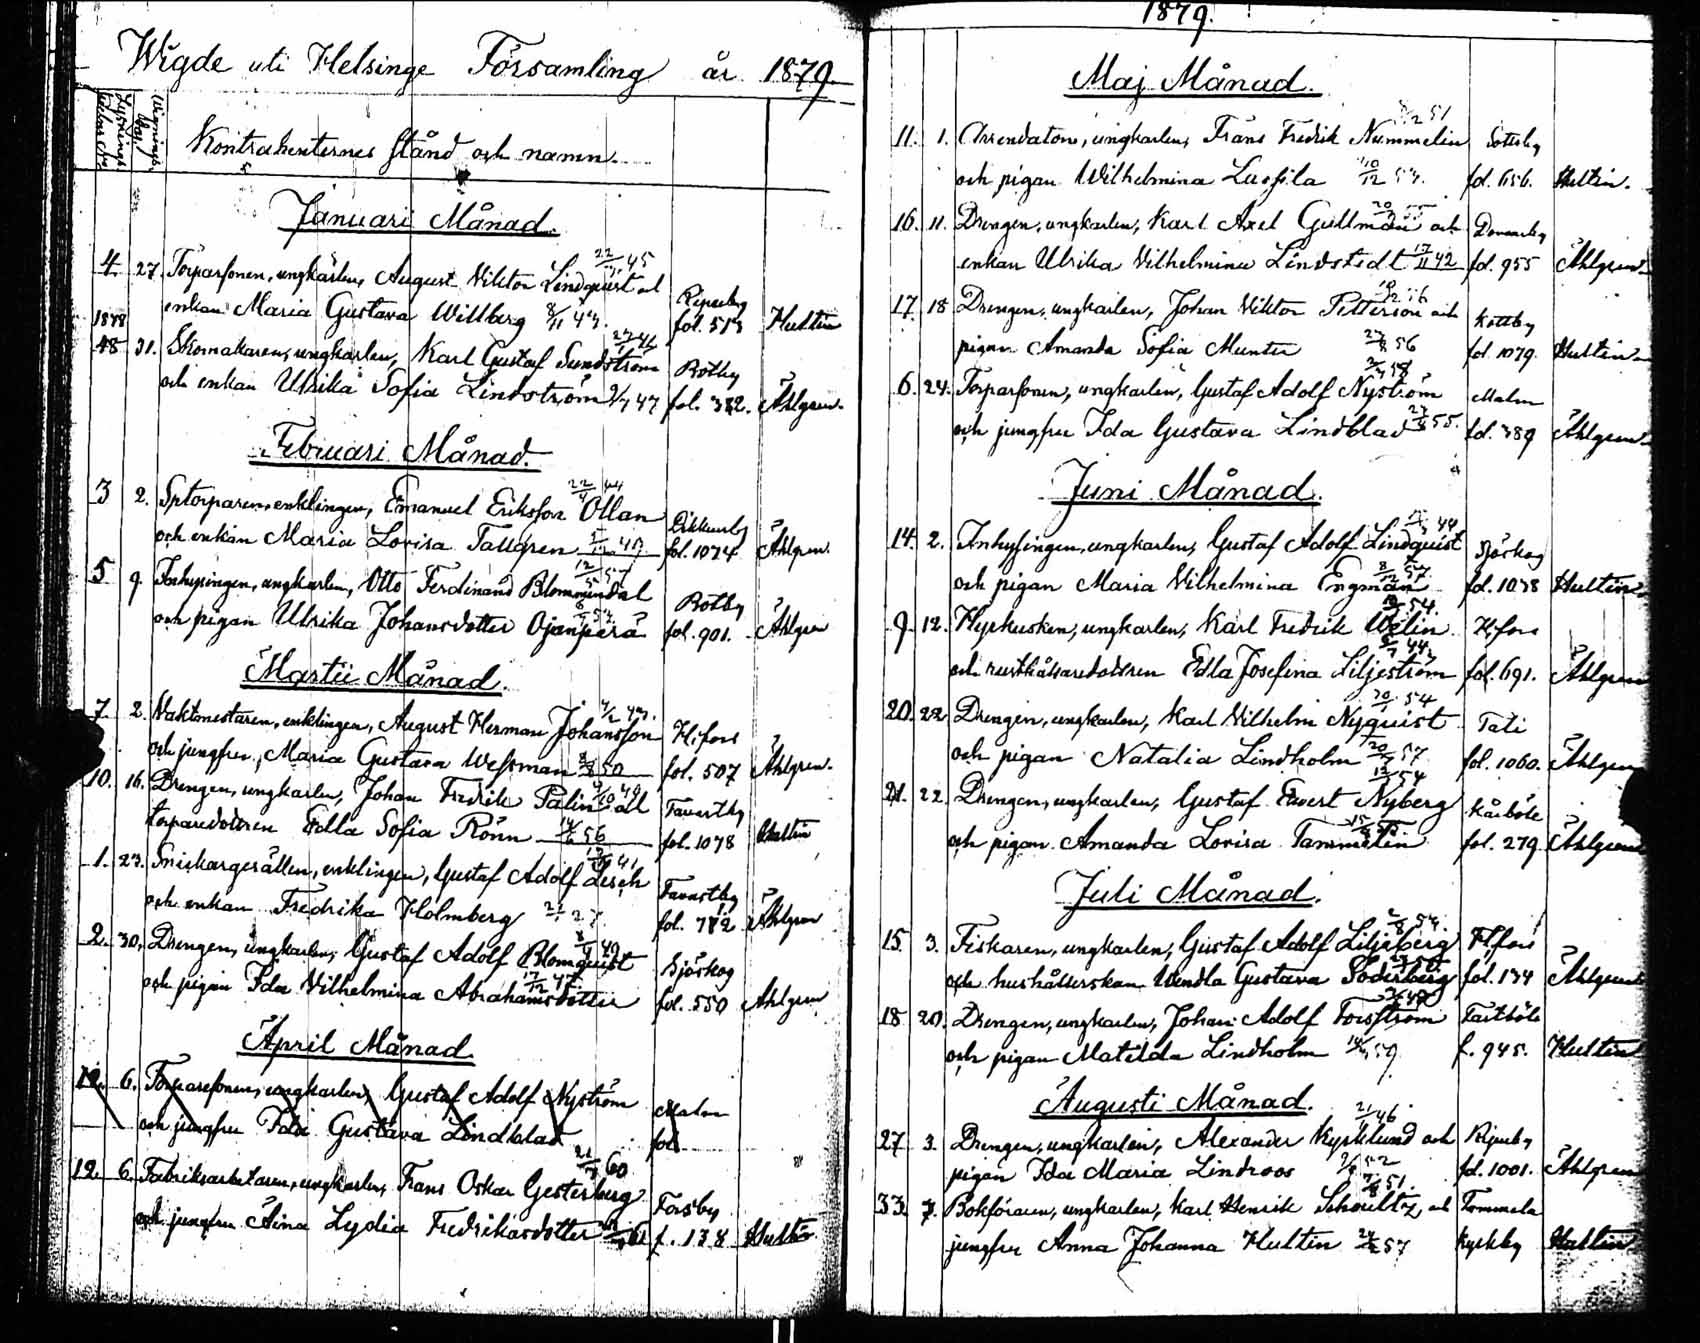 Wigde uti Helsinge Församling år 1879.
Lysnings Wignings dag Kontrahenternes stånd och namn.
Januari Månad.
4. 27. Torparsonen, ungkarlen, August Viktor Lindquist och 45
enkan Maria Gustava Willberg 8/11 43. fol. 513 Hultin
1878
48 31. Skomakaren, ungkarlen, Karl Gustaf Sundström Rotby
och enkan Ulrika Sofia Lindström fol. 382. Åhlgren.
Februari Månad.
3 2. Sptorparen, enklingen, Emanuel Eriksson Ollan Dikkursby
och enkan Maria Lovisa Tallgren fol. 1074 Åhlgren.
5 9. Inhysingen, ungkarlen, Otto Ferdinand Blommendal Rotby
och pigan Ulrika Johansdotter Ojanperä fol. 901. Åhlgren
Martii Månad.
7. 2. Vaktmästaren, enklingen, August Herman Johansson H:fors
och jungfrun, Maria Gustava Wessman 50 fol. 507 Åhlgren.
10. 16. Drengen, ungkarlen, Johan Fredrik Palin och Tavastby
torparedottren Edla Sofia Rönn 56 fol. 1078 Hultin
1. 23. Snickargesällen, enklingen, Gustaf Adolf Lesch 41 Tavastby
och enkan Fredrika Holmberg 27 fol. 782 Åhlgren
2. 30. Drengen, ungkarlen, Gustaf Adolf Blomquist Sjöskog
och pigan Ida Vilhelmina Abrahamsdotter fol. 550 Åhlgren
April Månad.
12. 6. Torparesonen, ungkarlen, Gustaf Adolf Nyström Malm
och jungfru Ida Gustava Lindblad fol.
12. 6. Fabriksarbetaren, ungkarlen, Frans Oskar Gesterberg 60 Forsby
och jungfru Aina Lydia Fredriksdotter 61 f. 138 Hultin
1879.
Maj Månad.
11. 1. Arrendatorn, ungkarlen, Frans Fredrik Nummelin 51 Sottesby
och pigan Wilhelmina Luosila 10/12 53. fol. 656. Hultin.
16. 11. Drengen, ungkarlen, Karl Axel Gullman och Domarby
enkan Ulrika Vilhelmina Lindstedt 17/11 42 fol. 955 Åhlgren
17. 18 Drengen, ungkarlen, Johan Viktor Petterson och Kottby
pigan Amanda Sofia Munter 56 fol. 1079. Hultin
6. 24. Torparsonen, ungkarlen, Gustaf Adolf Nyström 58 Malm
och jungfru Ida Gustava Lindblad 55. fol. 389 Åhlgren
Juni Månad.
14. 2. Inhysingen, ungkarlen, Gustaf Adolf Lindquist 44 Sjöskog
och pigan Maria Vilhelmina Engman fol. 1038 Hultin
9. 12. Hyrkusken, ungkarlen, Karl Fredrik Welin 54. H:fors
och rusthållaredottren Edla Josefina Liljeström 44 fol. 691. Åhlgren
20. 22 Drengen, ungkarlen, Karl Vilhelm Nyquist 54 Tali
och pigan Natalia Lindholm 57 fol. 1060. Åhlgren
21. 22 Drengen, ungkarlen, Gustaf Evert Nyberg 54 Kårböle
och pigan Amanda Lovisa Tammelin fol. 279 Åhlgren
Juli Månad.
15. 3. Fiskaren, ungkarlen, Gustaf Adolf Liljeberg H:fors
och hushållerskan Wendla Gustava Söderberg fol. 134 Åhlgren
18 20. Drengen, ungkarlen, Johan Adolf Forsström Tavtböle
och pigan Matilda Lindholm 59 f. 945. Hultin
Augusti Månad.
27 3. Drengen, ungkarlen, Alexander Kyrklund och 21/1 46 Ripuby
pigan Ida Maria Lindroos 52 fol. 1001. Åhlgren
33. 7. Bokföraren, ungkarlen, Karl Henrik Schoultz, och 51. Tommola
jungfru Anna Johanna Hultin 57 Kyrkby Hultin